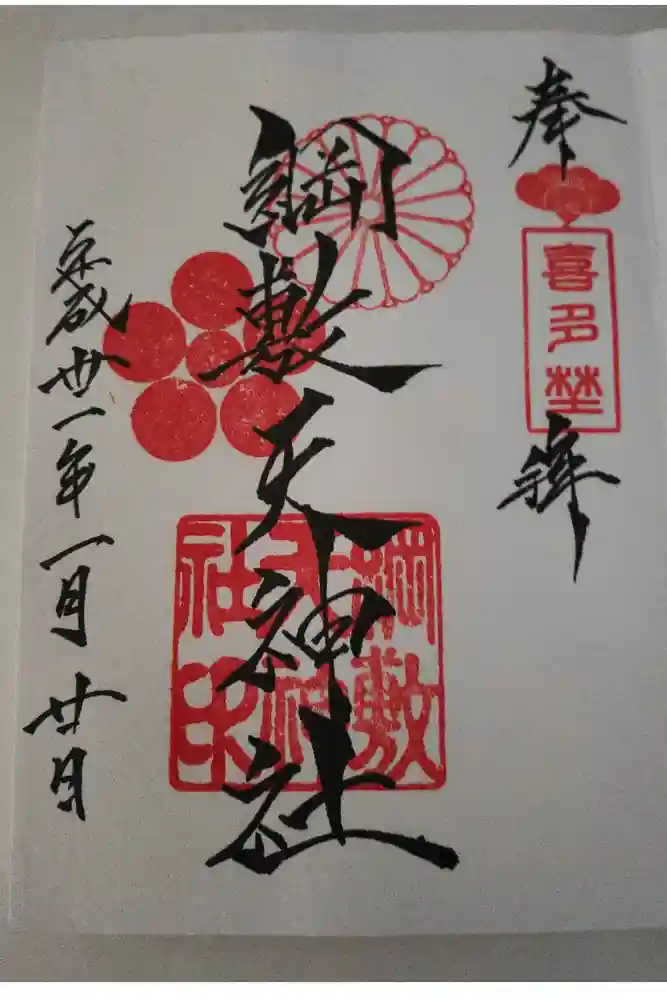 奉拝
喜多埜
綱敷天神社
綱敷
天神
社印
平成廿一年一月廿日